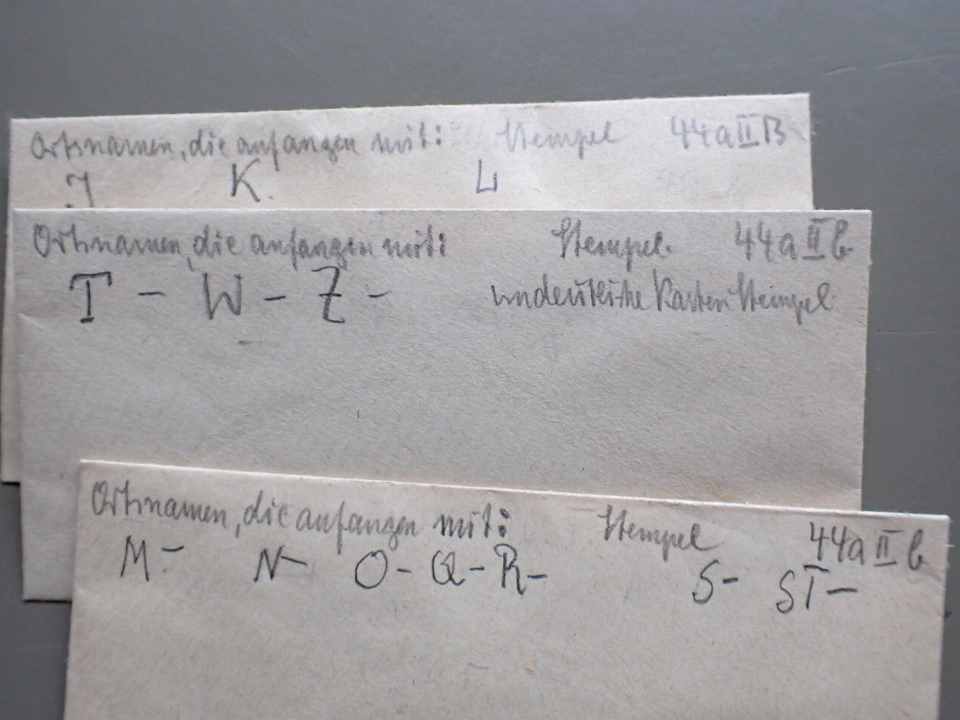 Ortsnamen, die anfangen mit: Stempel 44a II B
J K. L
Ortsnamen, die anfangen mit: Stempel. 44a II b
T – W – Z – undeutliche Karten Stempel
Ortsnamen, die anfangen mit: Stempel 44a II b
M – N – O – Q – R – S – ST –